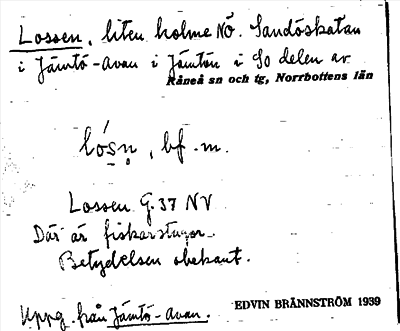 Lossen, liten holme NÖ. Sandöskatan
i Jämtö-Avan i Jämtön i So delen av
Råneå sn och tg, Norrbottens län
ló̱sn̥, bf. m.
Lossen G. 37 NV
Där är fiskarstugor.
Betydelsen obekant.
Uppg. från Jämtö-Avan.
EDVIN BRÄNNSTRÖM 1939